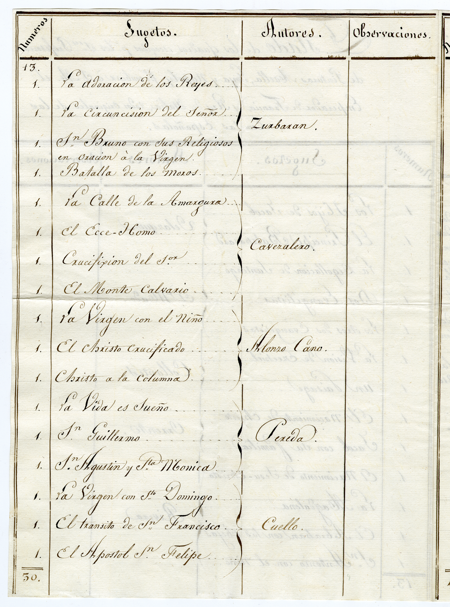 Numeros Sugetos. Autores. Observaciones.
13.
1. La Adoracion de los Reyes
1. La Circuncision del Señor
Zurbaran.
1. Sn. Bruno con sus Religiosos
en oracion à la Virgen
1. Batalla de los moros
1. La Calle de la Amargura
1. El Ecce-Homo
Cavezalero.
1. Crucifixion del Sor.
1. El Monte Calvario
1. La Virgen con el Niño
1. El Christo Crucificado
Alonzo Cano.
1. Christo a la Columna
1. La Vida es Sueño
1. Sn. Guillermo
Pereda.
1. Sn. Agustin y Sta. Monica
1. La Virgen con Sto. Domingo
1. El transito de Sn. Francisco
Cuello.
1. El Apostol Sn. Felipe
30.